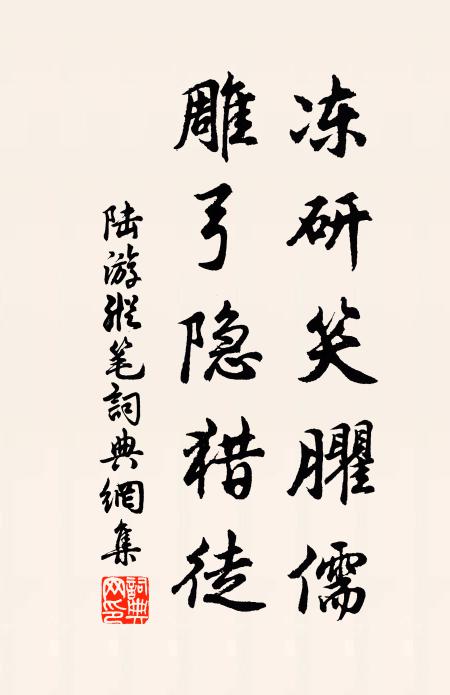 冻研笑臞儒
雕弓隐猎徒
陆游纵笔詞典網集
詞典网印